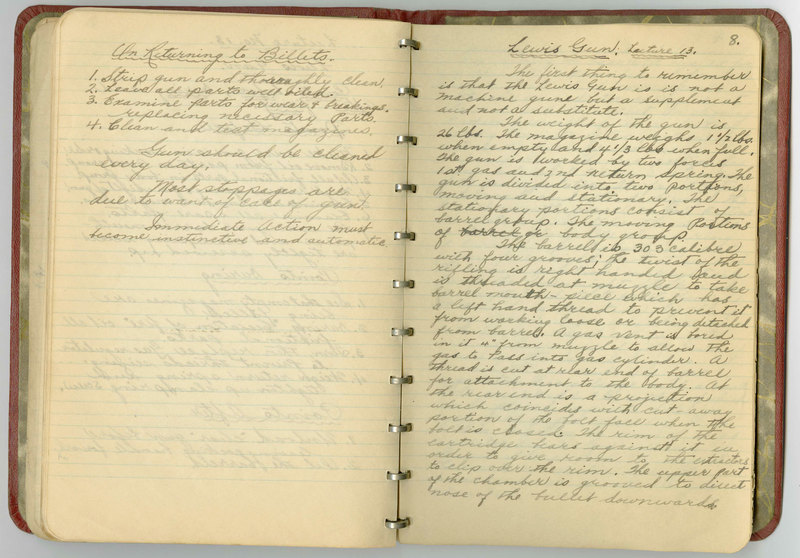 On Returning to Billets.
1. Strip gun and thoroughly clean.
2. Leave all parts well oiled.
3. Examine parts for wear & breakings.
replacing necessary Parts.
4. Clean and test magazines.
Gun should be cleaned
every day.
Most stoppages are
due to want of care of gun.
Immediate Action must
become instinctive and automatic
8.
Lewis Gun. Lecture 13.
The first thing to remember
is that the Lewis Gun is is not a
machine gune but a supplement
and not a substitute.
The weight of the gun is
26 lbs. The magazine weighs 1 1/2 lbs.
when empty and 4 1/3 lbs when full.
The gun is worked by two forces
1st gas and 2nd return Spring. The
gun is divided into two portions,
moving and stationary. The
stationary portions consist of
barrel group. The moving Portions
of barrel gr body group
The barrel is .303 calibre
with four grooves; the twist of the
rifling is right handed and
is threaded at muzzle to take
barrel mouth-piece which has
a left hand thread to prevent it
from working loose or being detached
from barrel. A gas vent is bored
in it 4" from muzzle to allow the
gas to Pass into gas cylinder. A
thread is cut at rear end of barrel
for attachment to the body. At
the rear end is a projection
which coincides with cut away
portion of the bolt face when the
bolt is closed. The rim of the
cartridge bears against it in
order to give room to the extractors
to slip over the rim. The upper part
of the chamber is grooved to direct
nose of the bullet downwards.